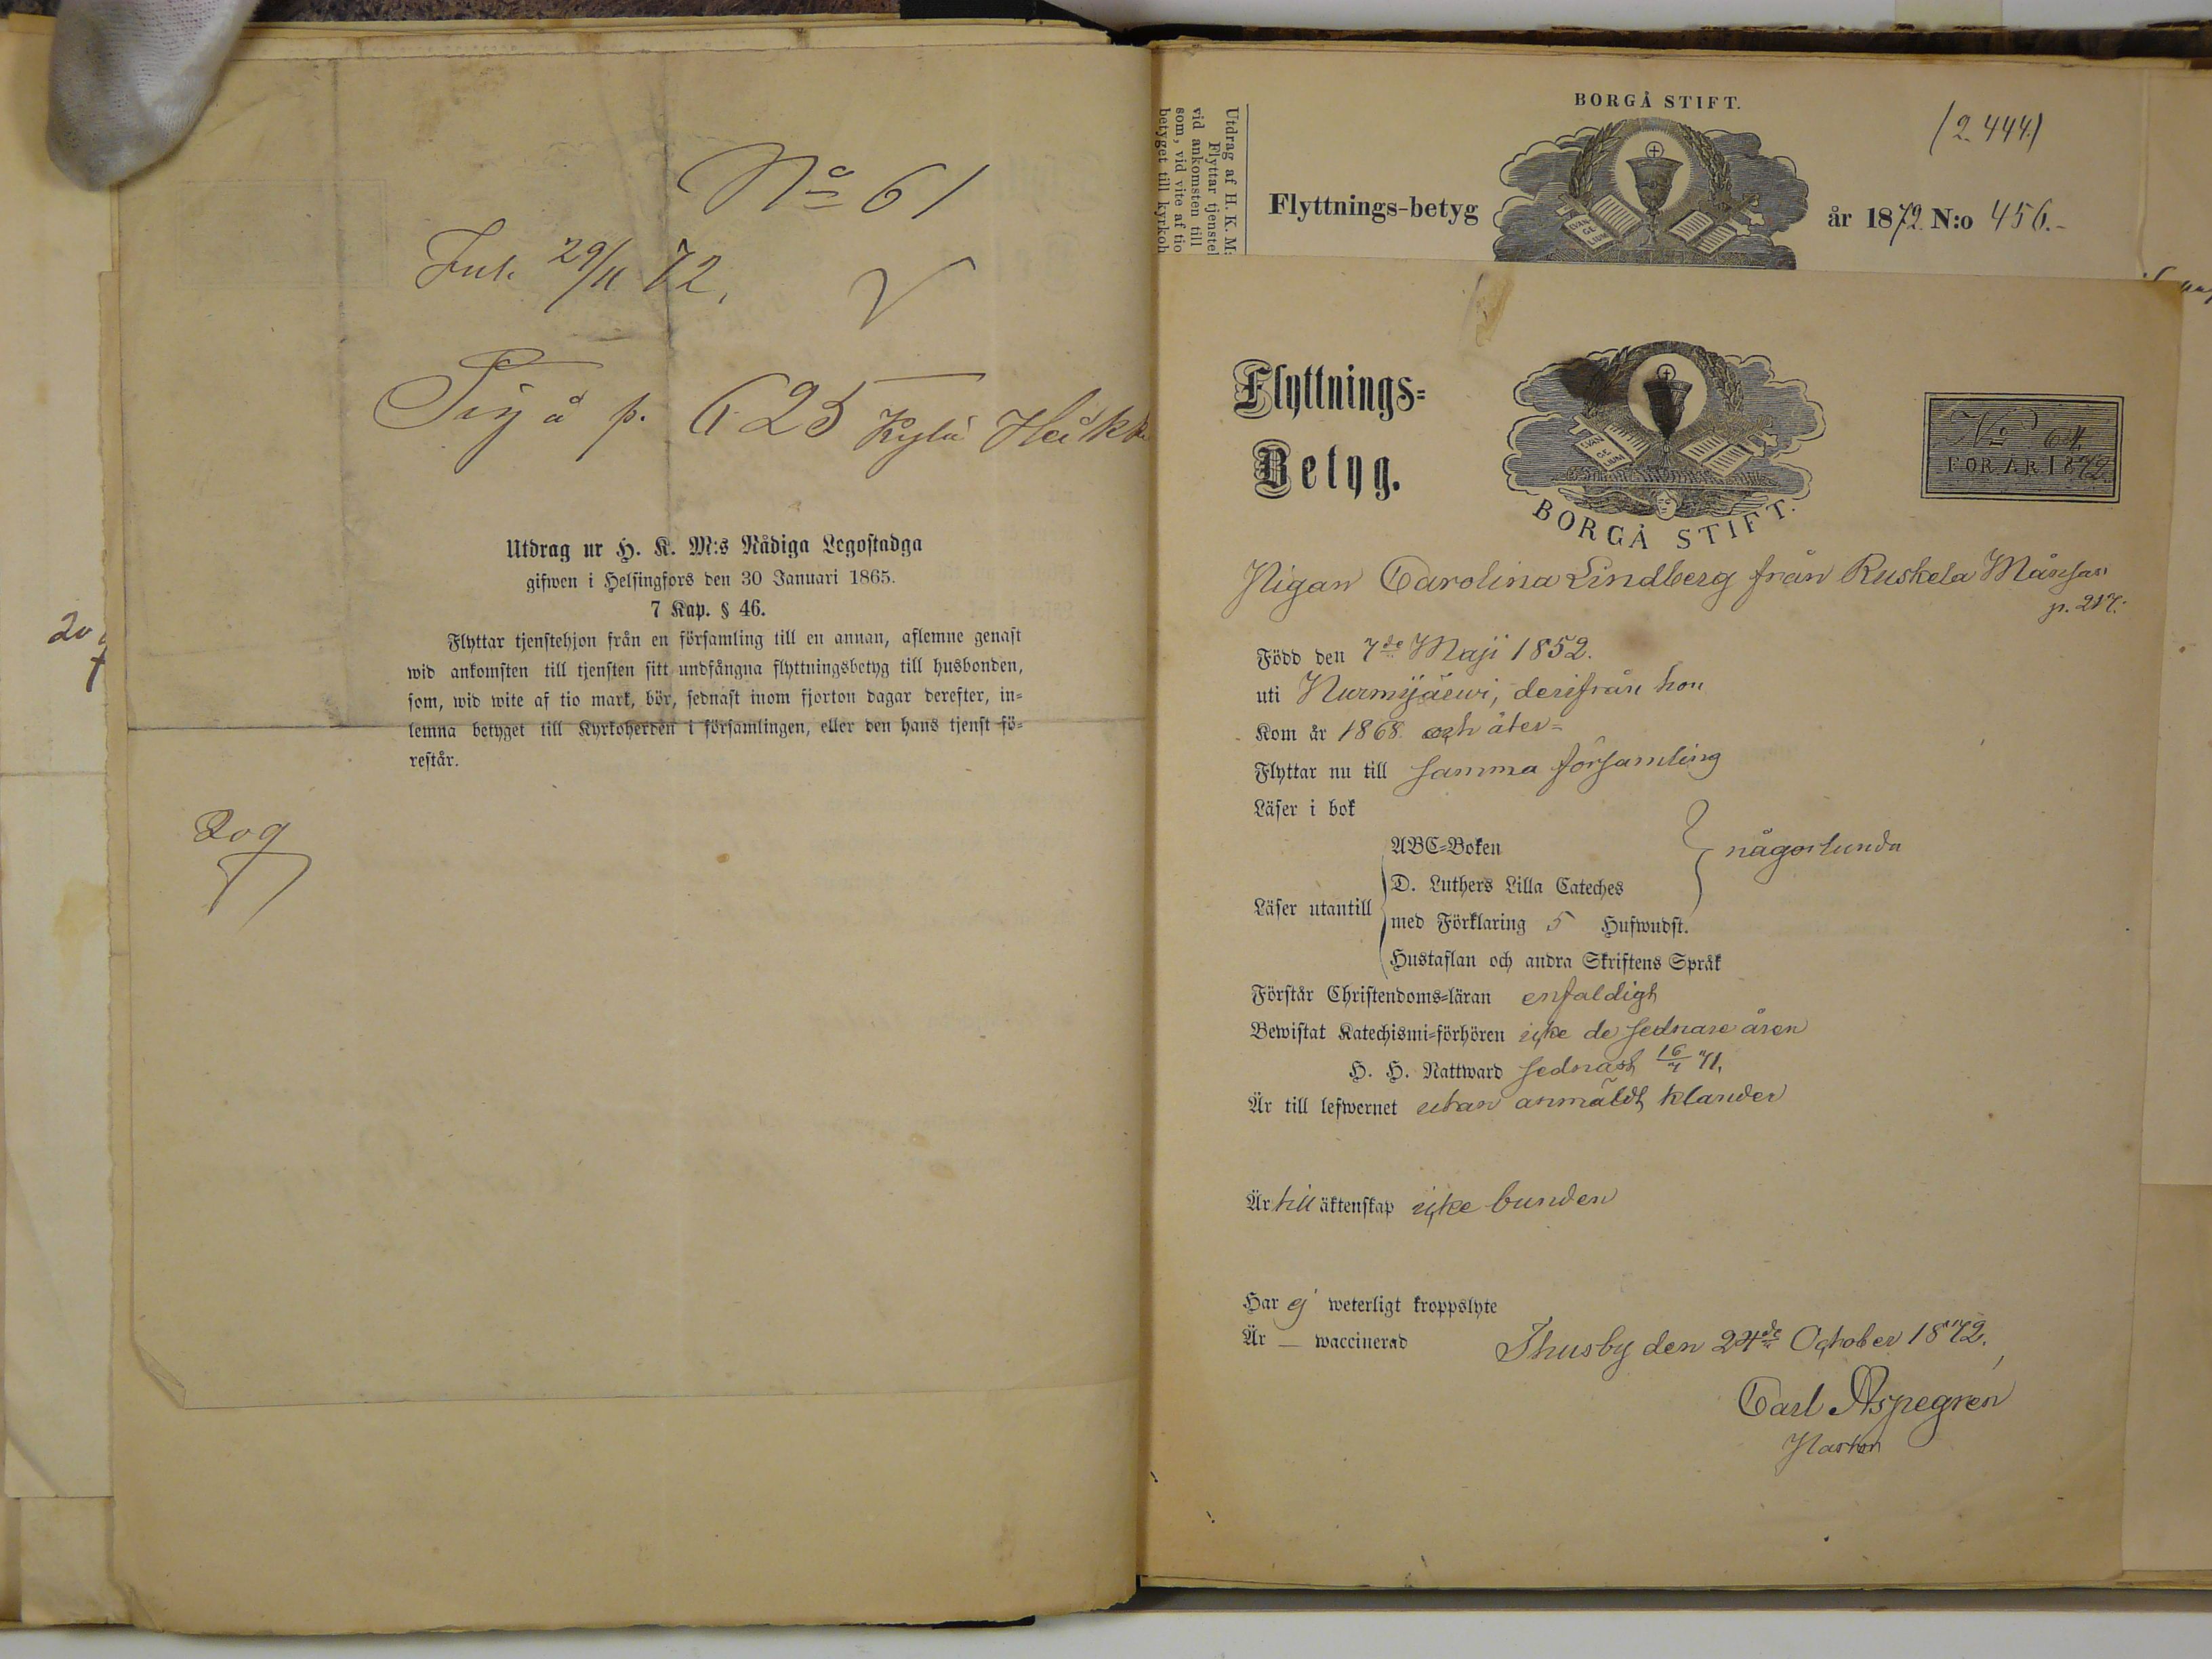 No 61
Ink 29/11 72.
Pig å p. 625 Kylä Heikk
Utdrag ur H. K. M:s Nådiga Legostadga
gifwen i Helsingfors den 30 Januari 1865.
7 Kap. § 46.
Flyttar tjenstehjon från en församling till en annan, aflemne genast
wid ankomsten till tjensten sitt undfångna flyttningsbetyg till husbonden,
som, wid wite af tio mark, bör, sednast inom fjorton dagar derefter, in-
lemna betyget till Kyrkoherden i församlingen, eller den hans tjenst fö-
restår.
209
Utdrag af H. K. M:
Flyttar tjenstel
vid ankomsten till
som, vid vite af tio
betyget till kyrkoh
BORGÅ STIFT.
(2.444.)
Flyttnings-betyg
EVAN
GE
LIUM
år 1872. N:o 456.-
Flyttnings-
Betyg.
EVAN
GE
LIUM
BORGÅ STIFT.
No 64.
FÖR ÅR 1872.
Pigan Carolina Lindberg från Ruskela Månsas
p. 217.
Född den 7de Maji 1852.
uti Nurmijärwi, derifrån hon
Kom år 1868. och åter-
Flyttar nu till samma församling
Läser i bok
Läser utantill
ABC-Boken
D. Luthers Lilla Cateches
med Förklaring 5 Hufwudst.
Hustaflan och andra Skriftens Språk
någorlunda
Förstår Christendoms-läran enfaldigt
Bewistat Katechismi-förhören icke de sednare åren
H. H. Nattward sednast 16/4 71.
Är till lefwernet utan anmäldt klander
Är till äktenskap icke bunden
Har ej weterligt kroppslyte
Är — waccinerad
Thusby den 24de October 1872.
Carl Aspegren
Pastor